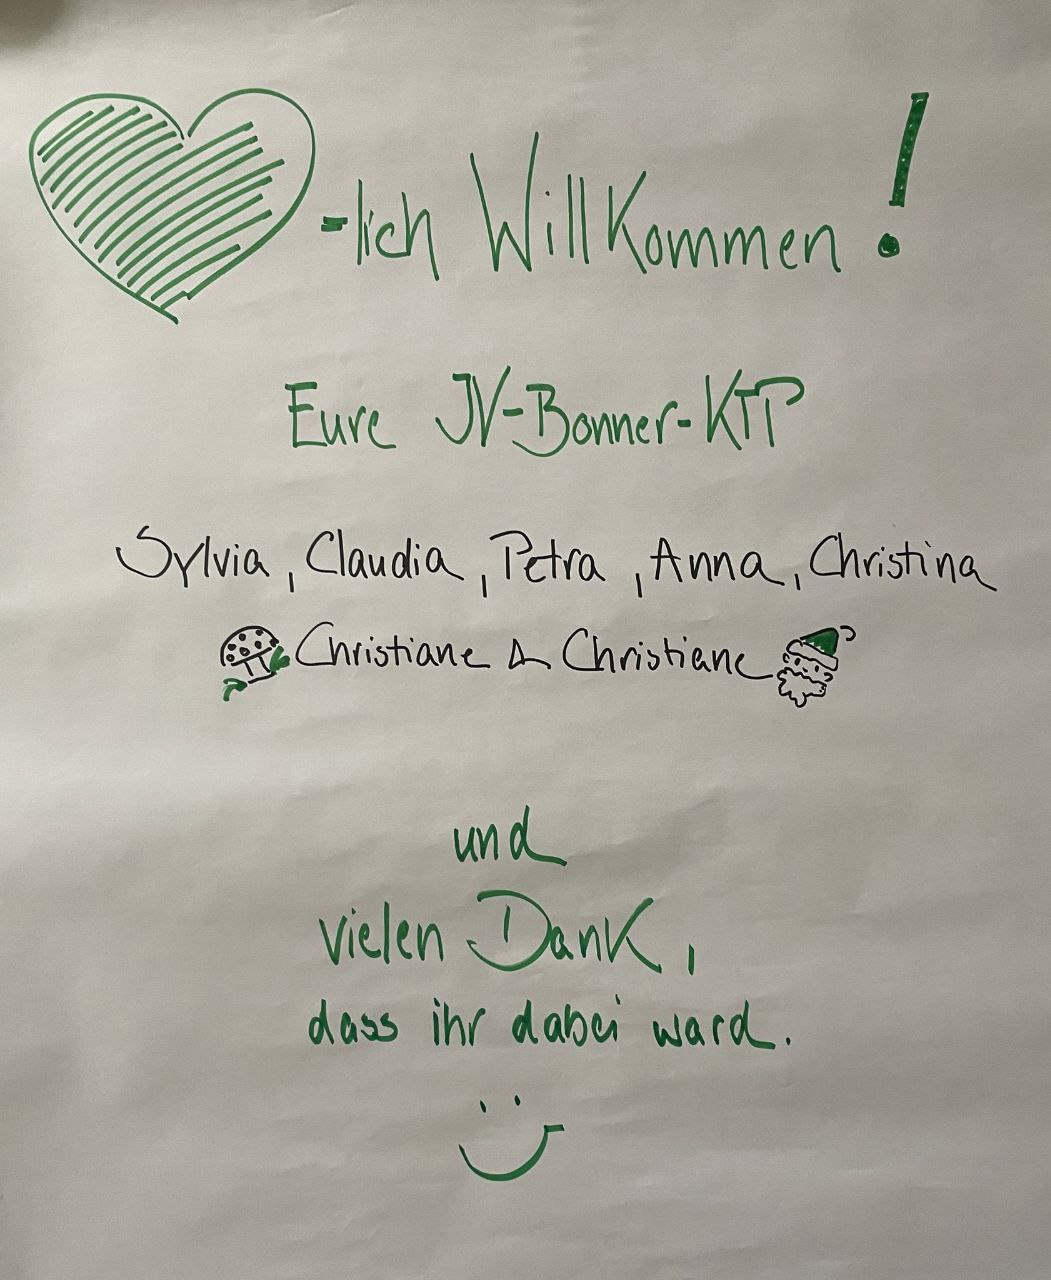 -lich Willkommen!
Eure JV-Bonner-KTP
Sylvia, Claudia, Petra, Anna, Christina
Christiane & Christiane
und
vielen Dank,
dass ihr dabei ward.